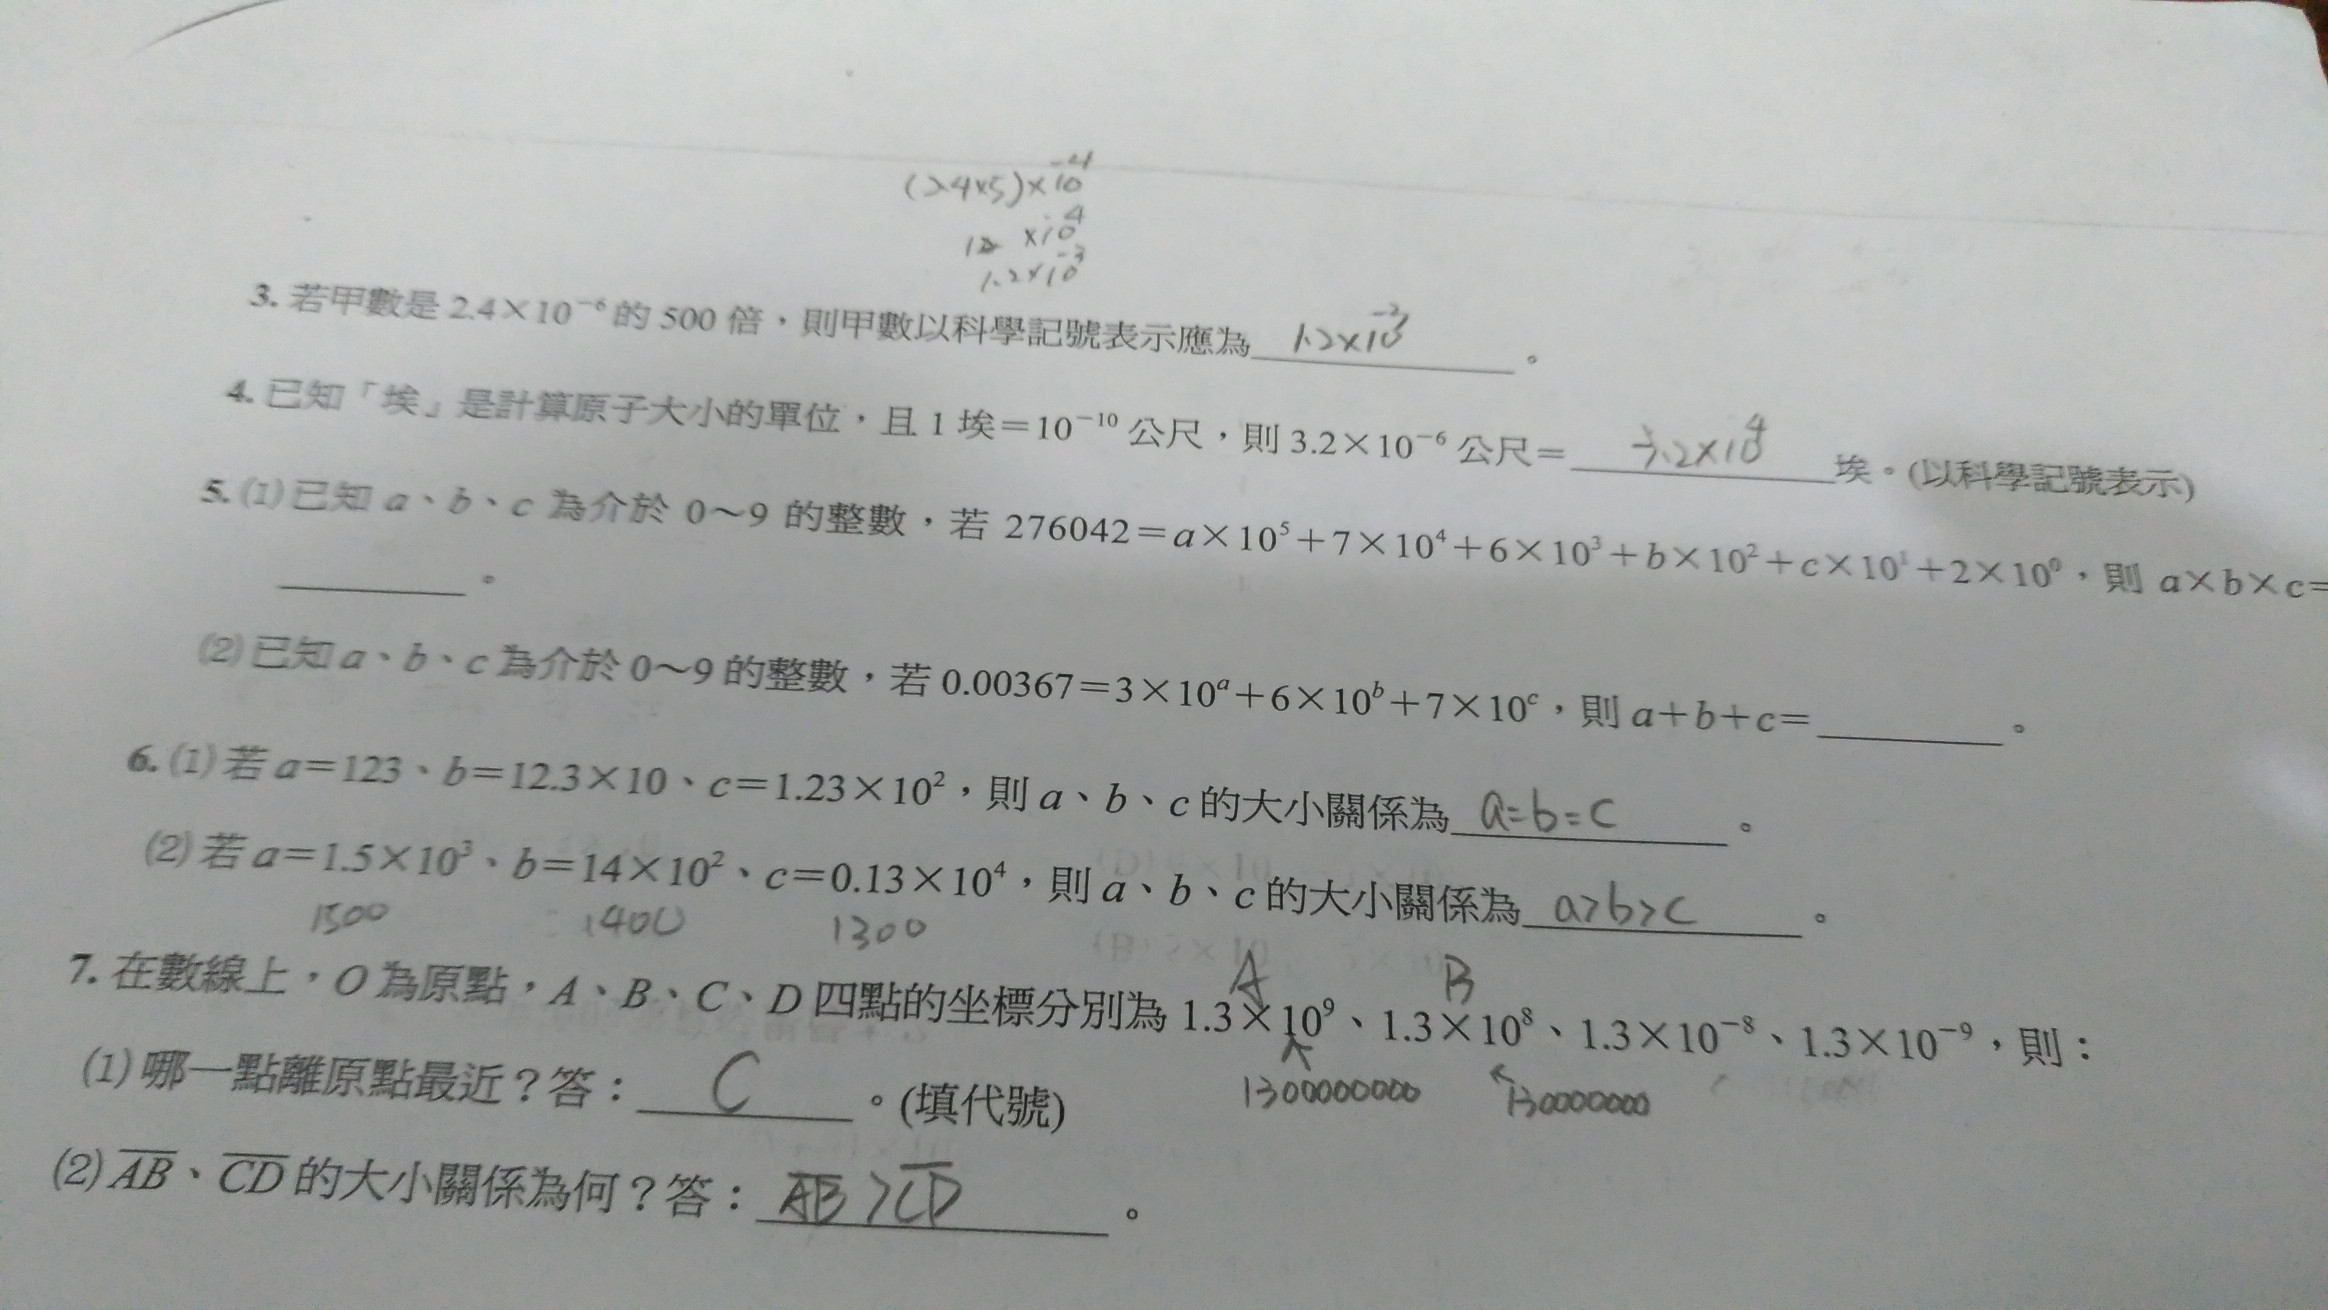 (2.4×5)×10⁻⁴
12 ×10⁻⁴
1.2×10⁻³
3. 若甲數是 2.4×10⁻⁶ 的 500 倍，則甲數以科學記號表示應為 1.2×10⁻³ 。
4. 已知「埃」是計算原子大小的單位，且 1 埃=10⁻¹⁰ 公尺，則 3.2×10⁻⁶ 公尺= 3.2×10⁴ 埃。(以科學記號表示)
5. (1) 已知 a、b、c 為介於 0～9 的整數，若 276042=a×10⁵+7×10⁴+6×10³+b×10²+c×10¹+2×10⁰，則 a×b×c=
______。
(2) 已知 a、b、c 為介於 0～9 的整數，若 0.00367=3×10ᵃ+6×10ᵇ+7×10ᶜ，則 a+b+c=______。
6. (1) 若 a=123、b=12.3×10、c=1.23×10²，則 a、b、c 的大小關係為 a=b=c 。
(2) 若 a=1.5×10³、b=14×10²、c=0.13×10⁴，則 a、b、c 的大小關係為 a>b>c 。
1500 1400 1300
A B
7. 在數線上，O 為原點，A、B、C、D 四點的坐標分別為 1.3×10⁹、1.3×10⁸、1.3×10⁻⁸、1.3×10⁻⁹，則：
1300000000 130000000
(1) 哪一點離原點最近？答： C 。(填代號)
(2) A̅B̅、C̅D̅ 的大小關係為何？答： A̅B̅>C̅D̅ 。